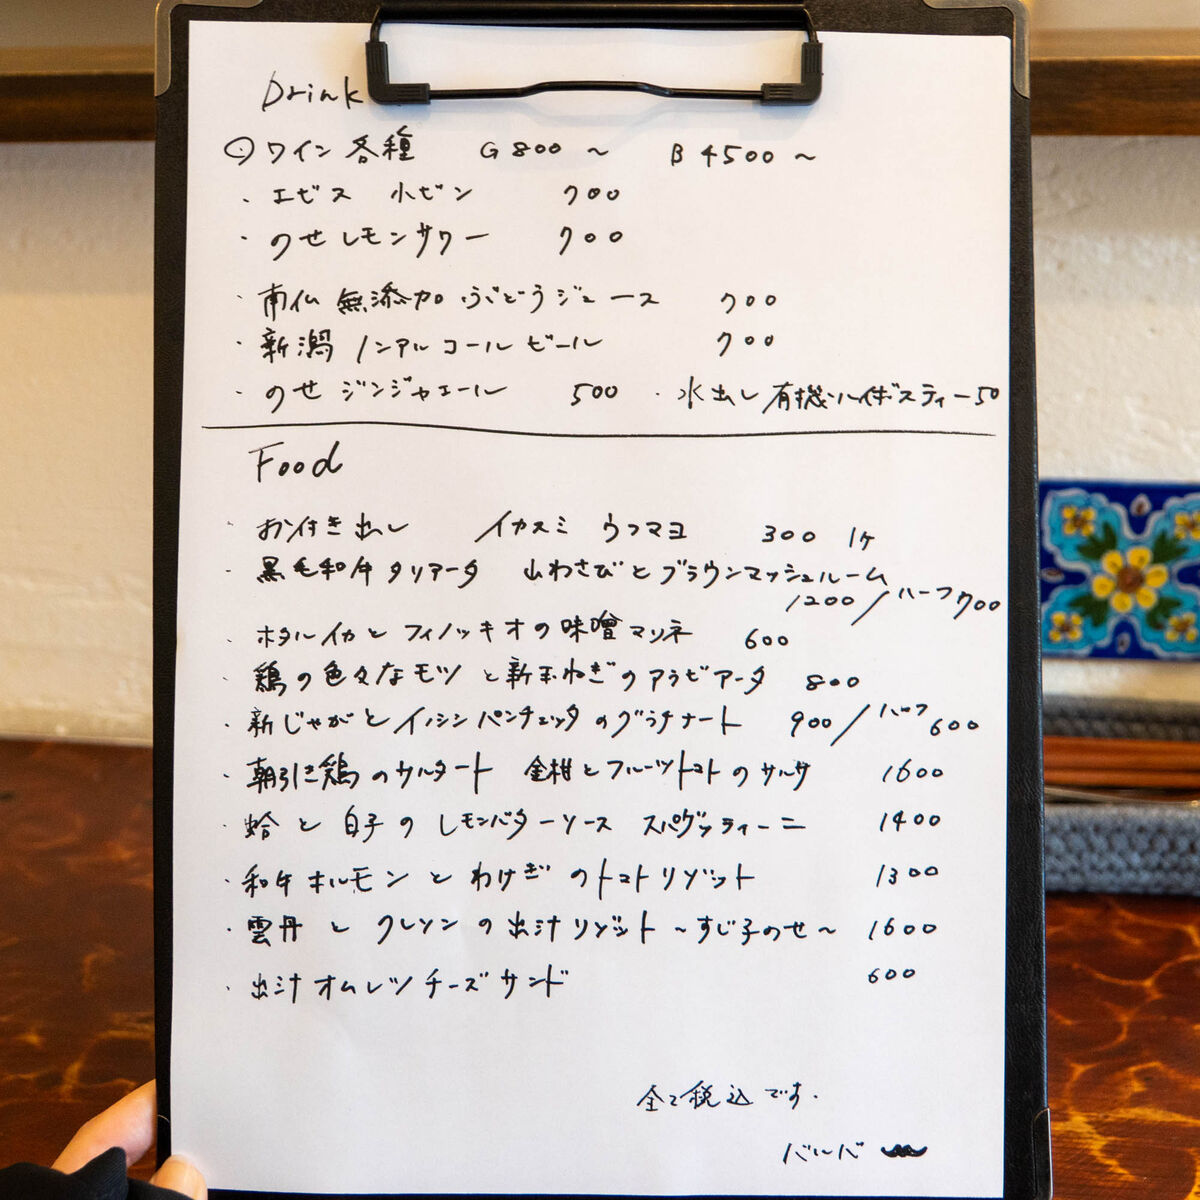 Drink
ワイン各種 G 800 ~ B 4500 ~
・ エビス 小ビン 700
・ のせレモンサワー 700
・ 南仏 無添加 ぶどうジュース 700
・ 新潟 ノンアルコールビール 700
・ のせ ジンジャエール 500 ・ 水出し 有機ハイビスティー 50
Food
・ お付き出し イカスミ ウフマヨ 300 1ヶ
・ 黒毛和牛タリアータ 山わさびとブラウンマッシュルーム
1200 / ハーフ 700
・ ホタルイカとフィノッキオの味噌マリネ 600
・ 鶏の色々なモツと新玉ねぎのアラビアータ 800
・ 新じゃがとイノシシパンチェッタのグラチナート 900 / ハーフ 600
・ 朝引き鶏のサルタート 金柑とフルーツトマトのサルサ 1600
・ 蛤と白子のレモンバターソース スパゲッティーニ 1400
・ 和牛ホルモンとわけぎのトマトリゾット 1300
・ 雲丹とクレソンの出汁リゾット ~すじ子のせ~ 1600
・ 出汁オムレツチーズサンド 600
全て税込です.
バルバ